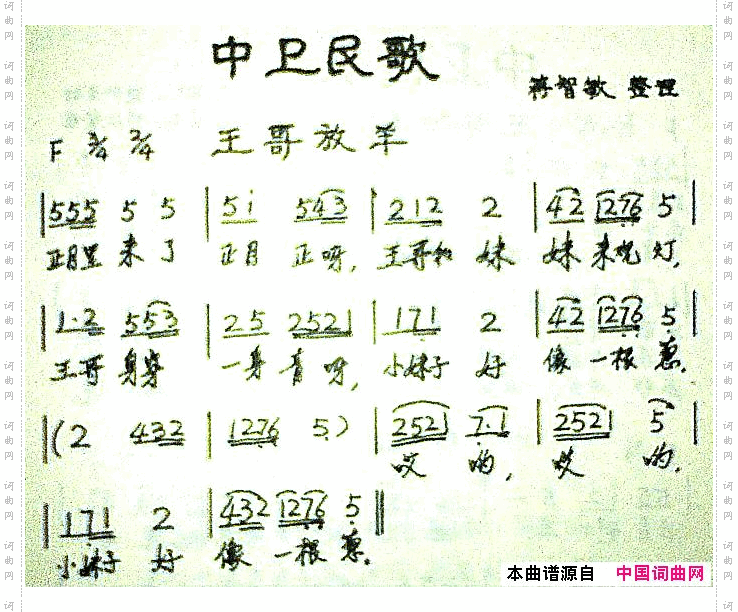 中卫民歌
蒋智敏 整理
F 3/4 2/4 王哥放羊
555 5 5 | 5i 543 | 212 2 | 42 1276 5 |
正月里来了 正月正呀, 王哥和妹 妹来观灯,
1·2 553 | 25 2521 | 171 2 | 42 1276 5 |
王哥身穿 一身青呀, 小妹子好 像一根葱.
(2 432 | 1276 5) | 2521 7·1 | 2521 5 |
哎哟, 哎哟.
171 2 | 432 1276 5 ‖
小妹子好 像一根葱.
本曲谱源自 中国词曲网